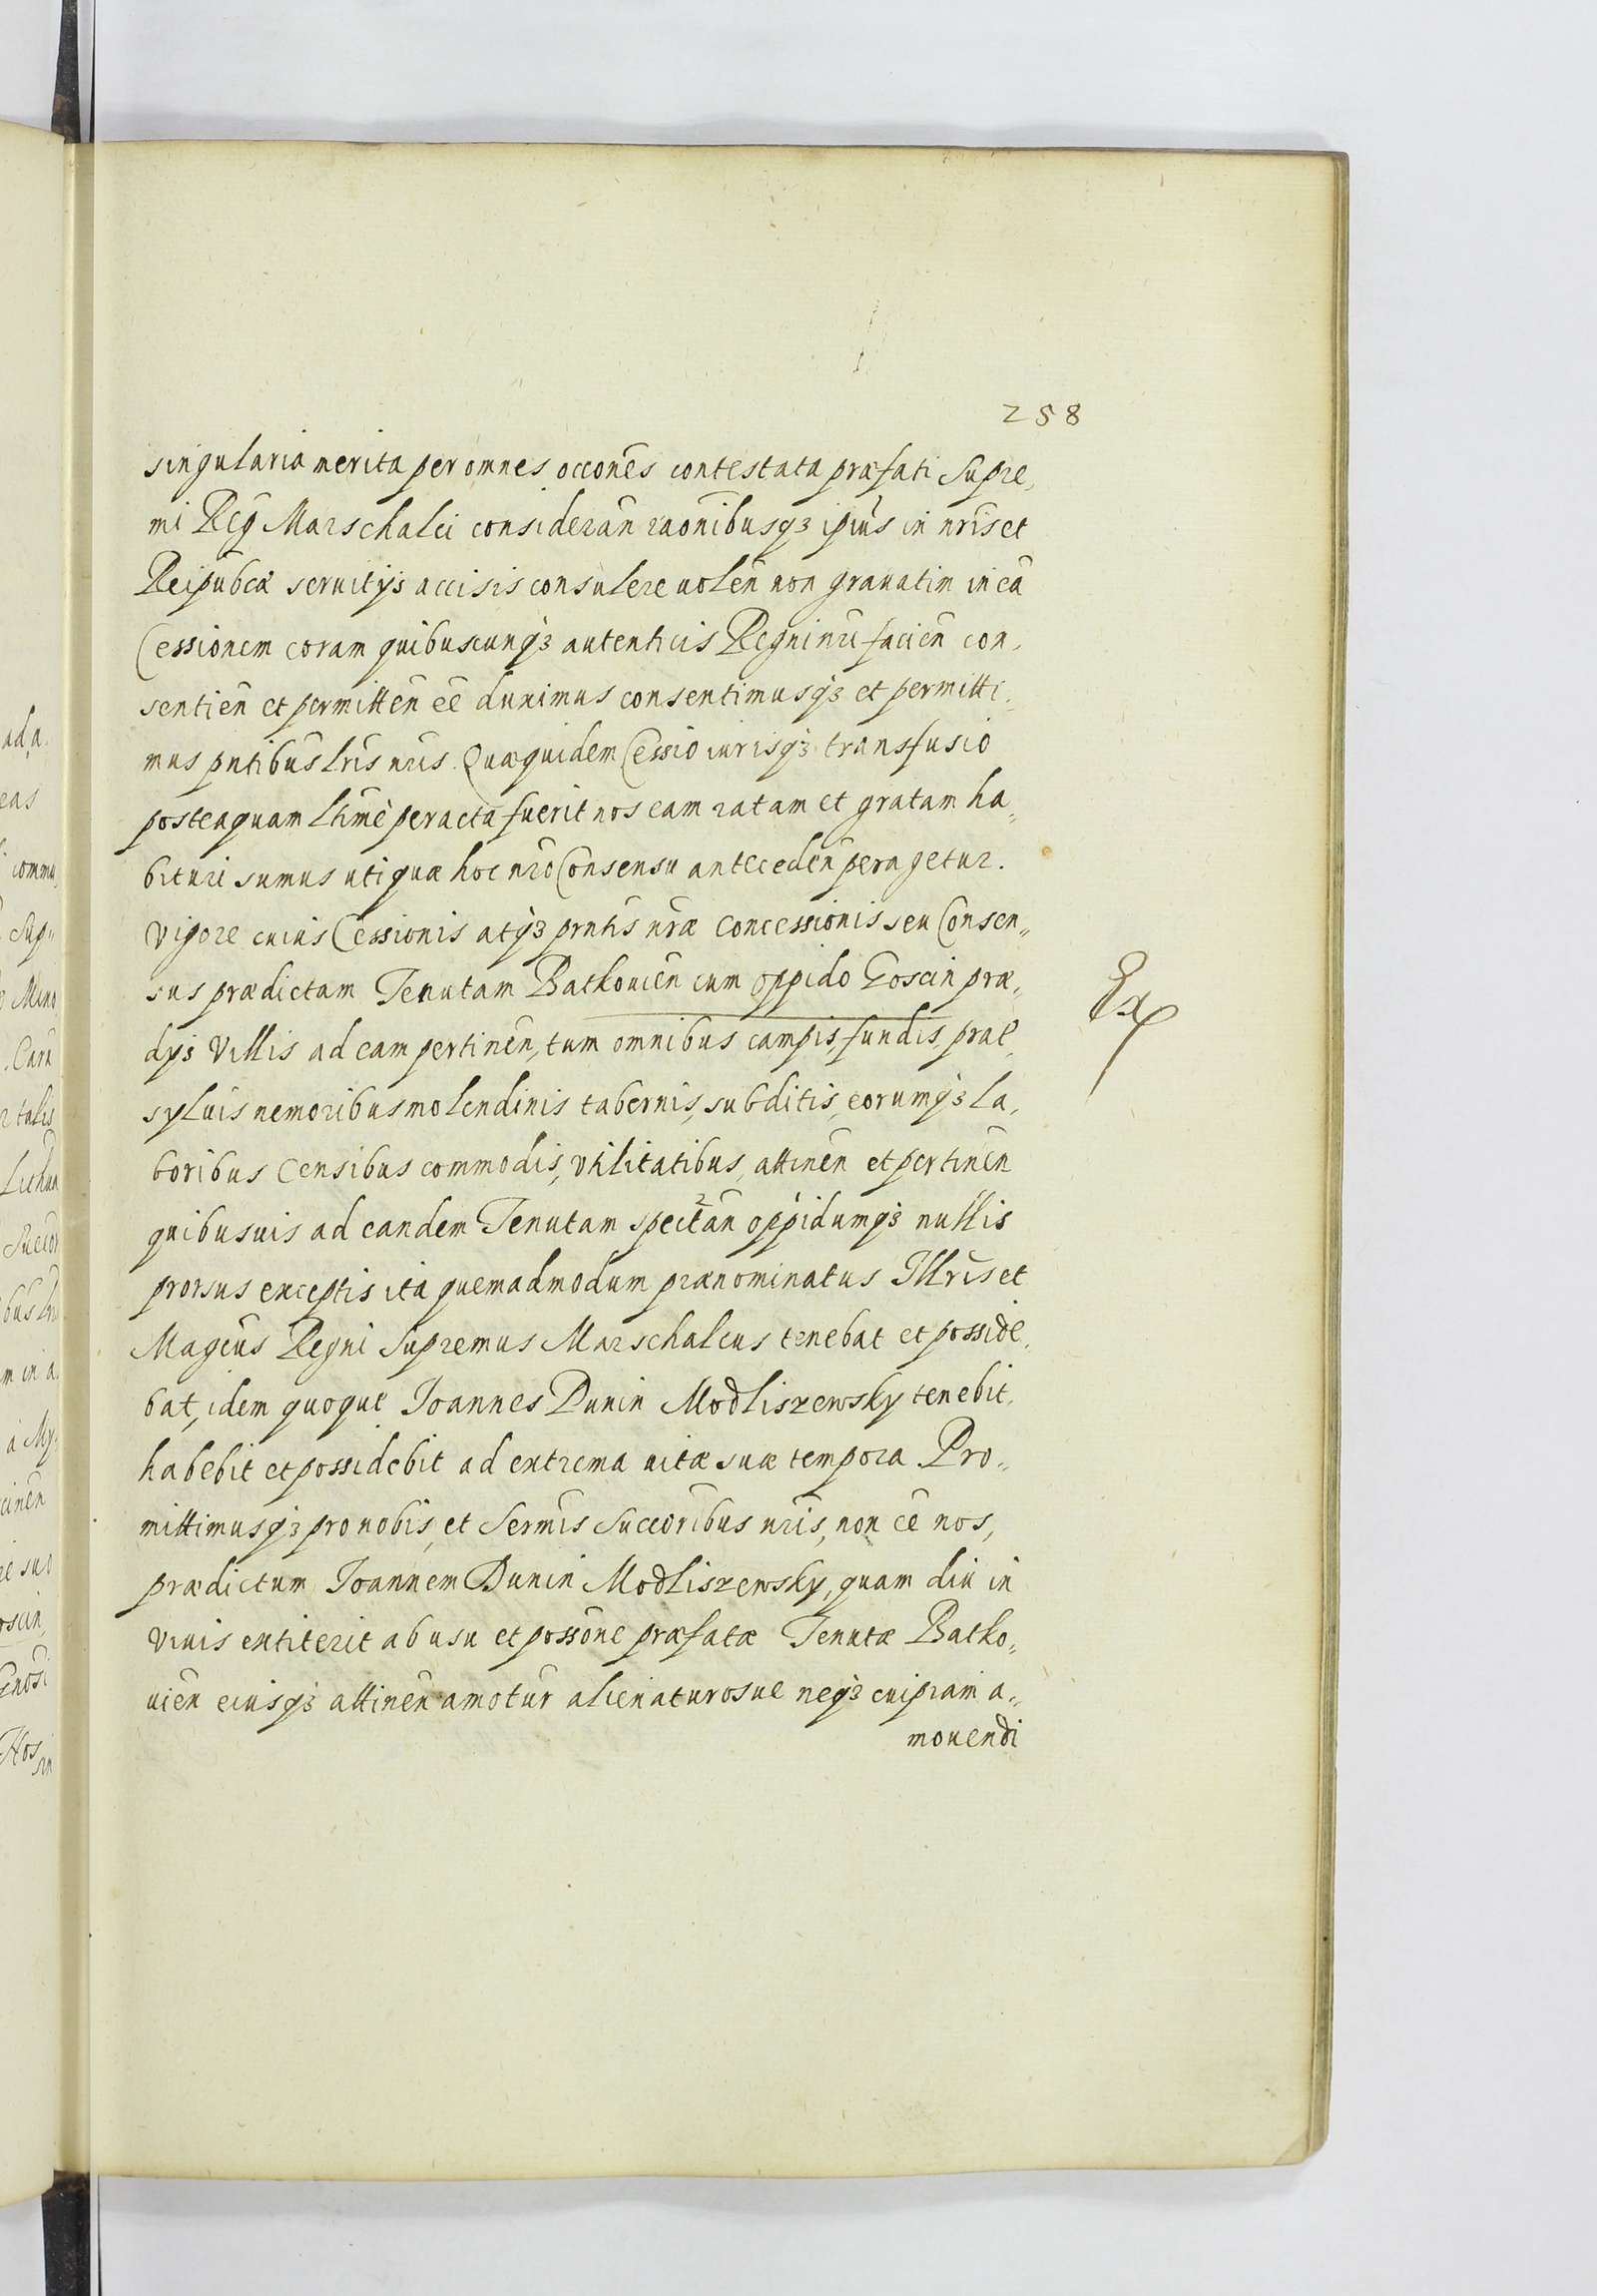 258
singularia merita per omnes occones contestata præfati Supre,
mi Reg Marschalci consideran̄ raonibusqȝ ipius in nris et
Reipubcæ seruitijs accisis consulere uolen̄ non grauatim in eā
Cessionem coram quibuscunqȝ autenticis Regni nri facien̄ con,
sentien̄ et permitten̄ eē duximus consentimusqȝ et permitti,
mus pntibus lris nris. Quæ quidem Cessio iurisqȝ transfusio
posteaquam lhme peracta fuerit nos eam ratam et gratam ha,,
bituri sumus uti quæ hoc nro Consensu anteceden̄ peragetur.
Vigore cuius Cessionis atqȝ prntis nræ Concessionis seu Consen,,
sus prædictam Tenutam Bathouien̄ cum oppido Goscin præ,,
dijs Villis ad eam pertinen̄, tum omnibus campis, fundis, prat,
syluis nemoribus molendinis tabernis, subditis, eorumqȝ la,
boribus Censibus commodis, vtilitatibus, attinen̄ et pertinen̄
quibusuis ad eandem Tenutam spectan̄ oppidumqȝ nullis
prorsus exceptis ita quemadmodum prænominatus Illris et
Magcus Regni Supremus Marschalcus tenebat et posside,
bat, idem quoque Joannes Dunin Modliszewsky tenebit,
habebit et possidebit ad extrema uitæ suæ tempora. Pro,,
mittimusqȝ pro nobis, et Sermis Succoribus nris, non eē nos,
prædictum Joannem Dunin Modliszewsky, quam diu in
viuis extiterit ab usu et possone præfatæ Tenutæ Batho,,
uien̄ eiusqȝ attinen̄ amotur alienaturosue neqȝ cuipiam a,,
mouendi
Ex